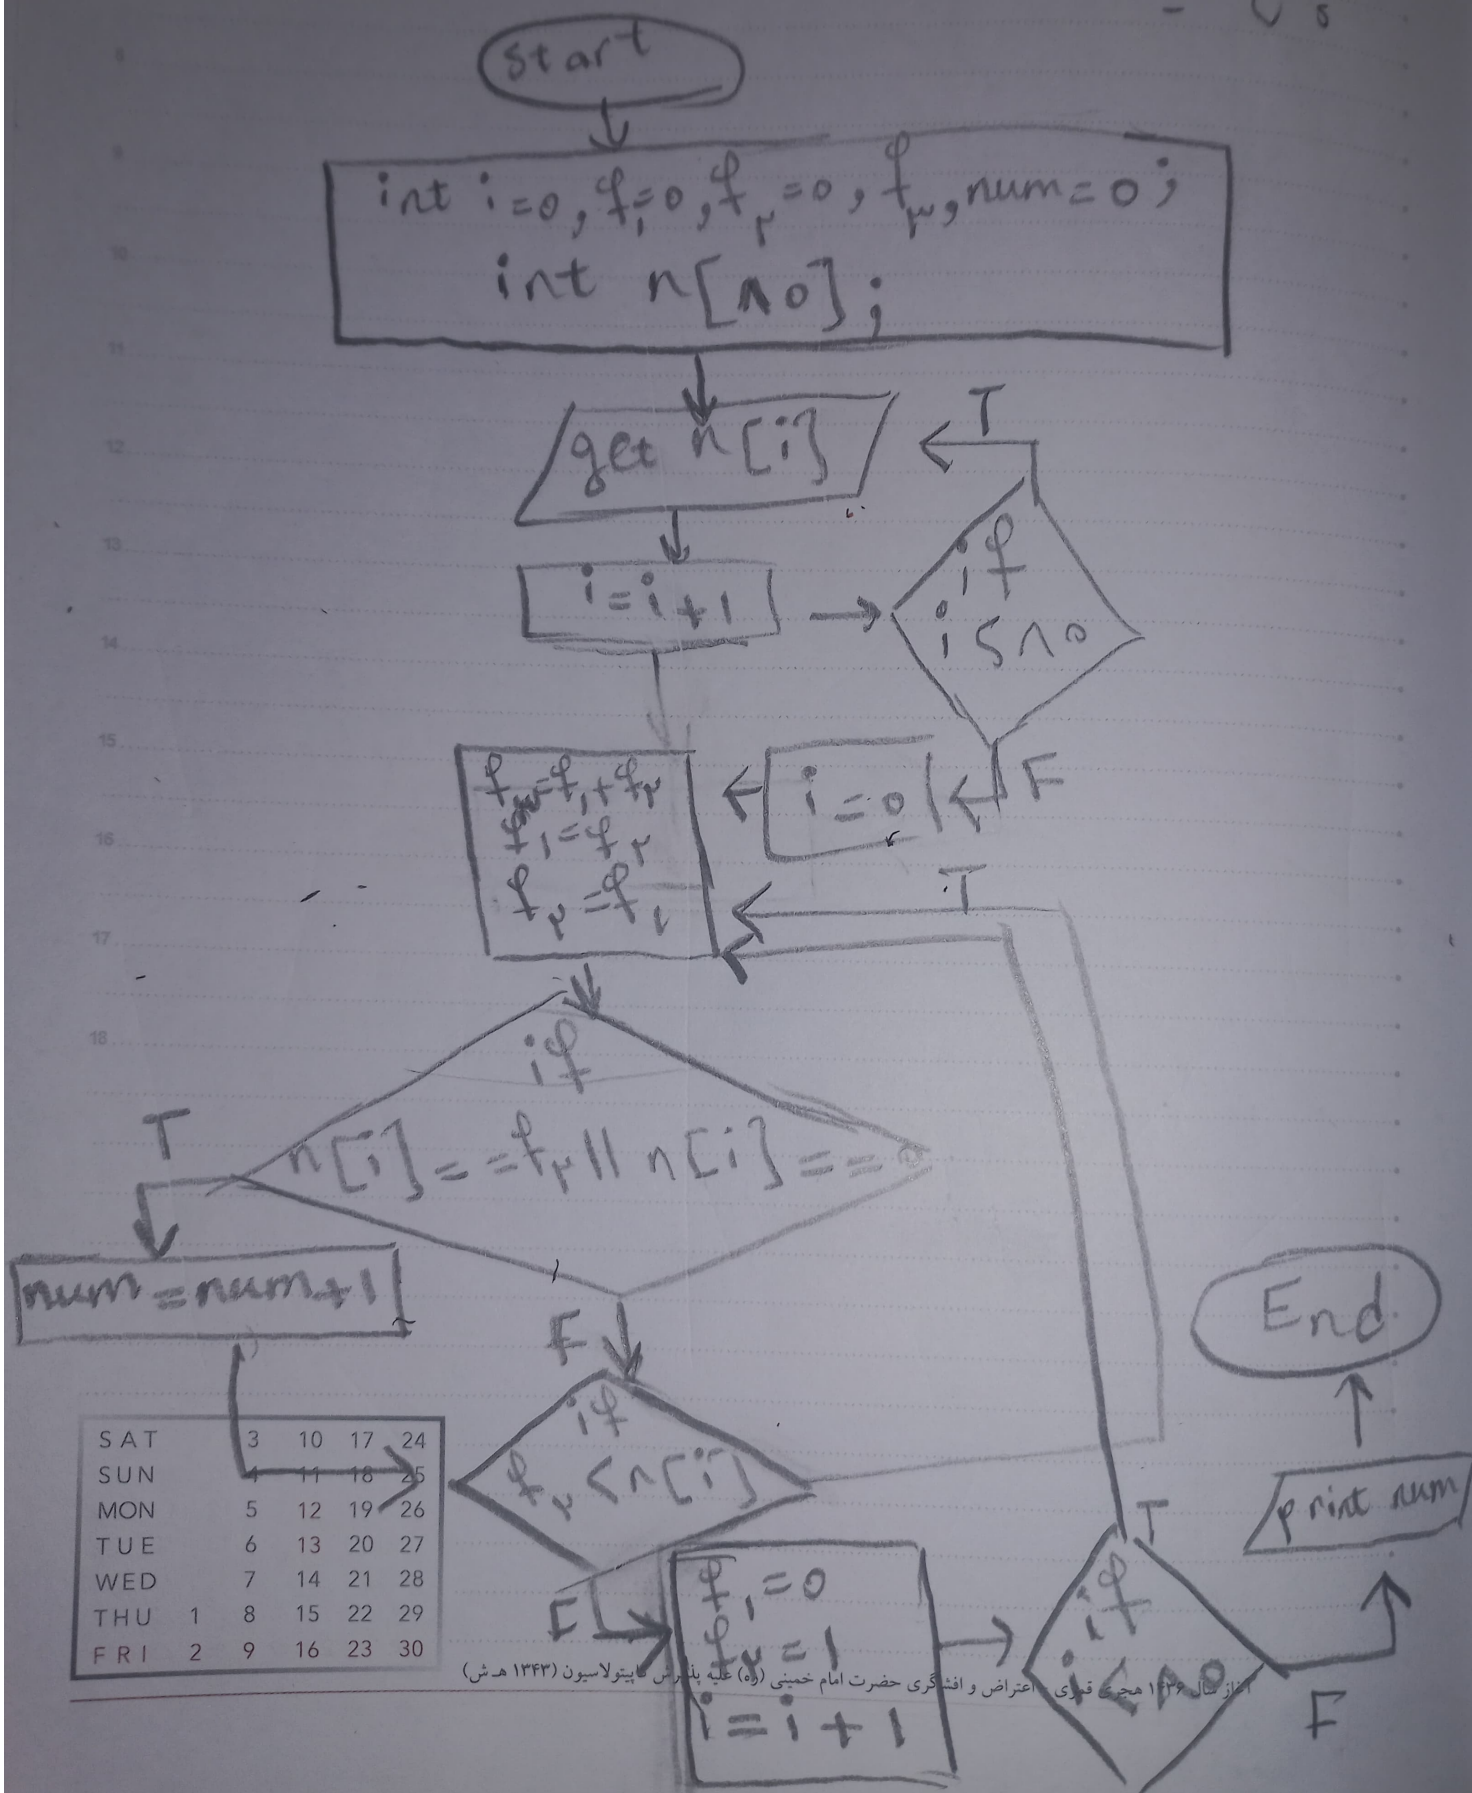 start
int i=0, f₁=0, f۲=0, f۳, num=0;
int n[۸0];
get n[i]
T
i=i+1
if
i<۸0
F
i=0
f۳=f₁+f۲
f₁=f۲
f۲=f
T
if
n[i]==f۲ || n[i]==0
T
num=num+1
F
if
f۲<n[i]
F
f₁=0
f۲=1
i=i+1
T
if
i<۸0
F
print num
End
8
9
10
11
12
13
14
15
16
17
18
SAT 3 10 17 24
SUN 4 11 18 25
MON 5 12 19 26
TUE 6 13 20 27
WED 7 14 21 28
THU 1 8 15 22 29
FRI 2 9 16 23 30
آغاز سال ۱۴۳۶ هجری قمری - اعتراض و افشاگری حضرت امام خمینی (ره) علیه پذیرش کاپیتولاسیون (۱۳۴۳ هـ ش)